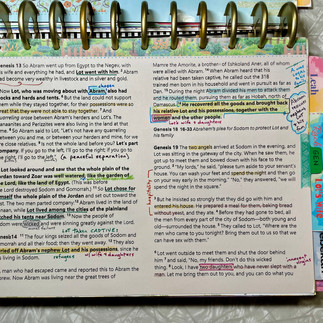 Genesis 13 So Abram went up from Egypt to the Negev, with
his wife and everything he had, and Lot went with him. 2 Abram
had become very wealthy in livestock and in silver and gold.
chosen
Now Lot, who was moving about with Abram, also had
flocks and herds and tents. 6 But the land could not support
them while they stayed together, for their possessions were so
great that they were not able to stay together. 7 And
quarreling arose between Abram's herders and Lot's. The
Canaanites and Perizzites were also living in the land at that
time. 8 So Abram said to Lot, "Let's not have any quarreling
between you and me, or between your herders and mine, for we
are close relatives. 9 Is not the whole land before you? Let's part
company. If you go to the left, I'll go to the right; if you go to
the right, I'll go to the left."
(a peaceful separation)
Lot looked around and saw that the whole plain of the
Jordan toward Zoar was well watered, like the garden of
the Lord, like the land of Egypt. (This was before
the Lord destroyed Sodom and Gomorrah.) 11 So Lot chose for
himself the whole plain of the Jordan and set out toward the
east. The two men parted company: 12 Abram lived in the land of
Canaan, while Lot lived among the cities of the plain and
pitched his tents near Sodom. 13 Now the people of
Sodom were wicked and were sinning greatly against the Lord.
LOT TAKEN CAPTIVE!
Genesis 14 11 The four kings seized all the goods of Sodom and
Gomorrah and all their food; then they went away. 12 They also
carried off Abram's nephew Lot and his possessions, since he
was living in Sodom.
refugee
w/ wife & daughters
13 A man who had escaped came and reported this to Abram the
Hebrew. Now Abram was living near the great trees of
Mamre the Amorite, a brother of Eshkol and Aner, all of whom
were allied with Abram. 14 When Abram heard that his
relative had been taken captive, he called out the 318
trained men born in his household and went in pursuit as far as
Dan. 15 During the night Abram divided his men to attack them
and he routed them, pursuing them as far as Hobah, north of
Damascus. 16 He recovered all the goods and brought back
his relative Lot and his possessions, together with the
women and the other people.
Lot's wife & daughters
Genesis 18 16-33 Abraham's plea for Sodom to protect Lot and
his family.
Genesis 19 The two angels arrived at Sodom in the evening, and
Lot was sitting in the gateway of the city. When he saw them, he
got up to meet them and bowed down with his face to the
ground. 2 "My lords," he said, "please turn aside to your servant's
house. You can wash your feet and spend the night and then go
on your way early in the morning." "No," they answered, "we will
spend the night in the square."
hospitality
3 But he insisted so strongly that they did go with him and
entered his house. He prepared a meal for them, baking bread
without yeast, and they ate. 4 Before they had gone to bed, all
the men from every part of the city of Sodom—both young and
old—surrounded the house. 5 They called to Lot, "Where are the
men who came to you tonight? Bring them out to us so that we
can have sex with them."
6 Lot went outside to meet them and shut the door behind
him 7 and said, "No, my friends. Don't do this wicked
thing. 8 Look, I have two daughters who have never slept with a
man. Let me bring them out to you, and you can do what you
innocent
virgins